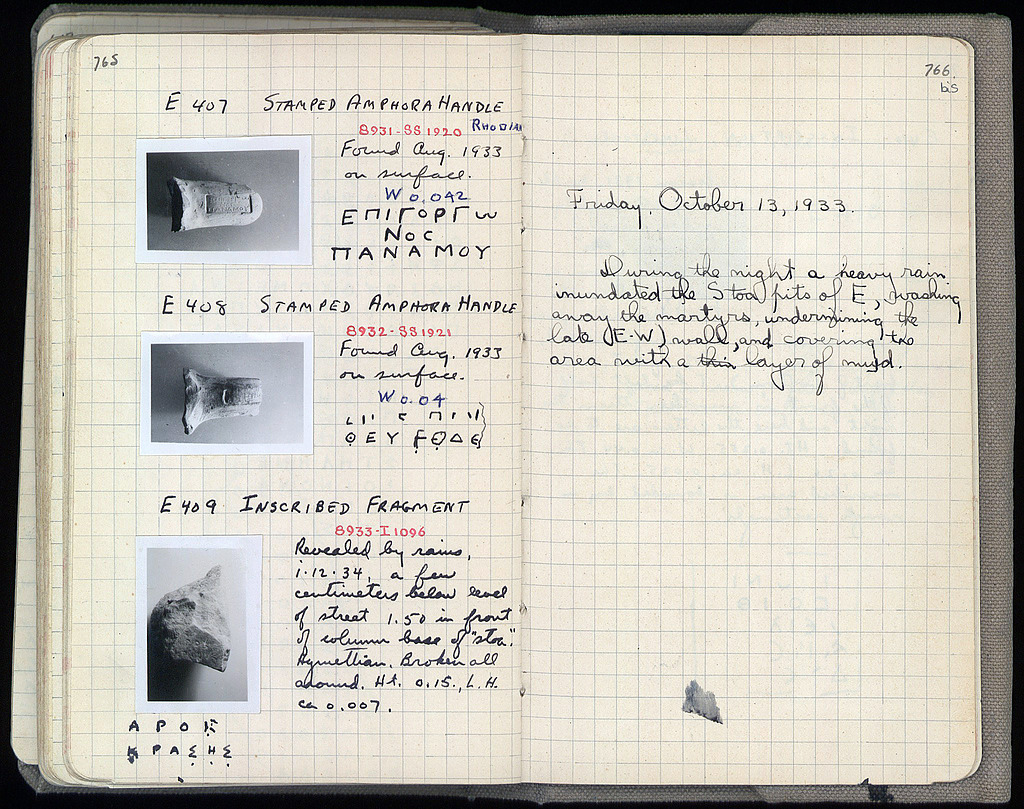 765
E 407 STAMPED AMPHORA HANDLE
8931-SS 1920 RHODIAN
Found Aug. 1933
on surface.
W 0.042
ΕΠΙΓΟΡΓω
Νος
ΠΑΝΑΜΟΥ
E 408 STAMPED AMPHORA HANDLE
8932-SS1921
Found Aug. 1933
on surface.
W 0.04
ΘΕΥ
E 409 INSCRIBED FRAGMENT
8933-I 1096
Revealed by rains,
1·12·34, a few
centimeters below level
of street 1.50 in front
of column base of "stoa".
Hymettian. Broken all
around. Ht. 0.15., L.H.
ca 0.007.
ΑΡΟΚ
ΚΡΑΣΗΣ
766
bis
Friday, October 13, 1933.
During the night a heavy rain
inundated the Stoa pits of E, washing
away the martyrs, undermining the
late (E-W) wall, and covering the
area with a thin layer of mud.